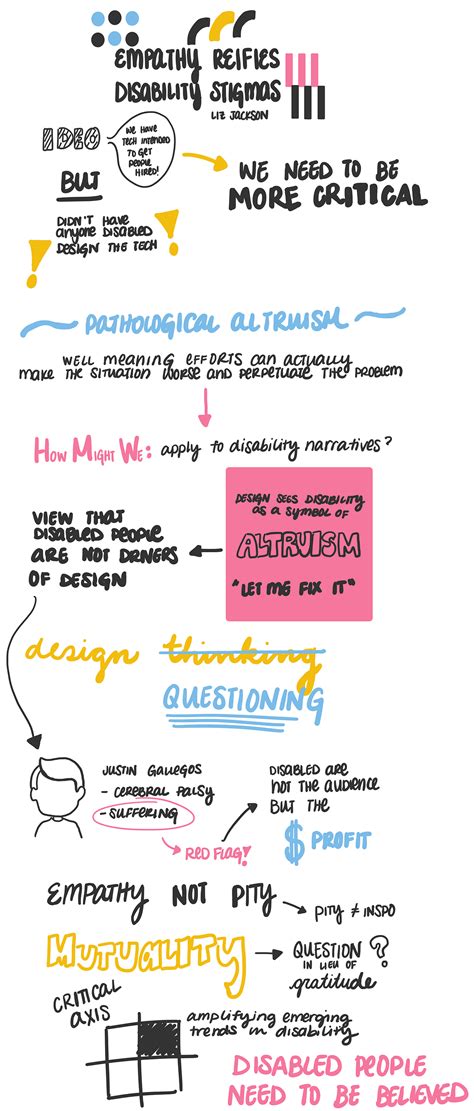 EMPATHY REIFIES
DISABILITY STIGMAS
LIZ JACKSON
IDEO
WE HAVE
TECH INTENDED
TO GET
PEOPLE
HIRED!
BUT
DIDN'T HAVE
anyone DISABLED
DESIGN THE TECH
WE NEED TO BE
MORE CRITICAL
PATHOLOGICAL ALTRUISM
WELL MEANING EFFORTS CAN ACTUALLY
MAKE THE SITUATION WORSE AND PERPETUATE THE PROBLEM
HOW MIGHT WE: apply to disability narratives?
DESIGN SEES DISABILITY
AS A SYMBOL OF
ALTRUISM
"LET ME FIX IT"
VIEW THAT
DISABLED PEOPLE
ARE NOT DRIVERS
OF DESIGN
design thinking
QUESTIONING
JUSTIN GALLEGOS
- CEREBRAL PALSY
- SUFFERING
RED FLAG!
DISABLED ARE
NOT THE AUDIENCE
BUT THE
$ PROFIT
EMPATHY NOT PITY
PITY ≠ INSPO
MUTUALITY
QUESTION ?
IN LIEU OF
gratitude
CRITICAL
AXIS
amplifying emerging
trends in disability
DISABLED PEOPLE
NEED TO BE BELIEVED